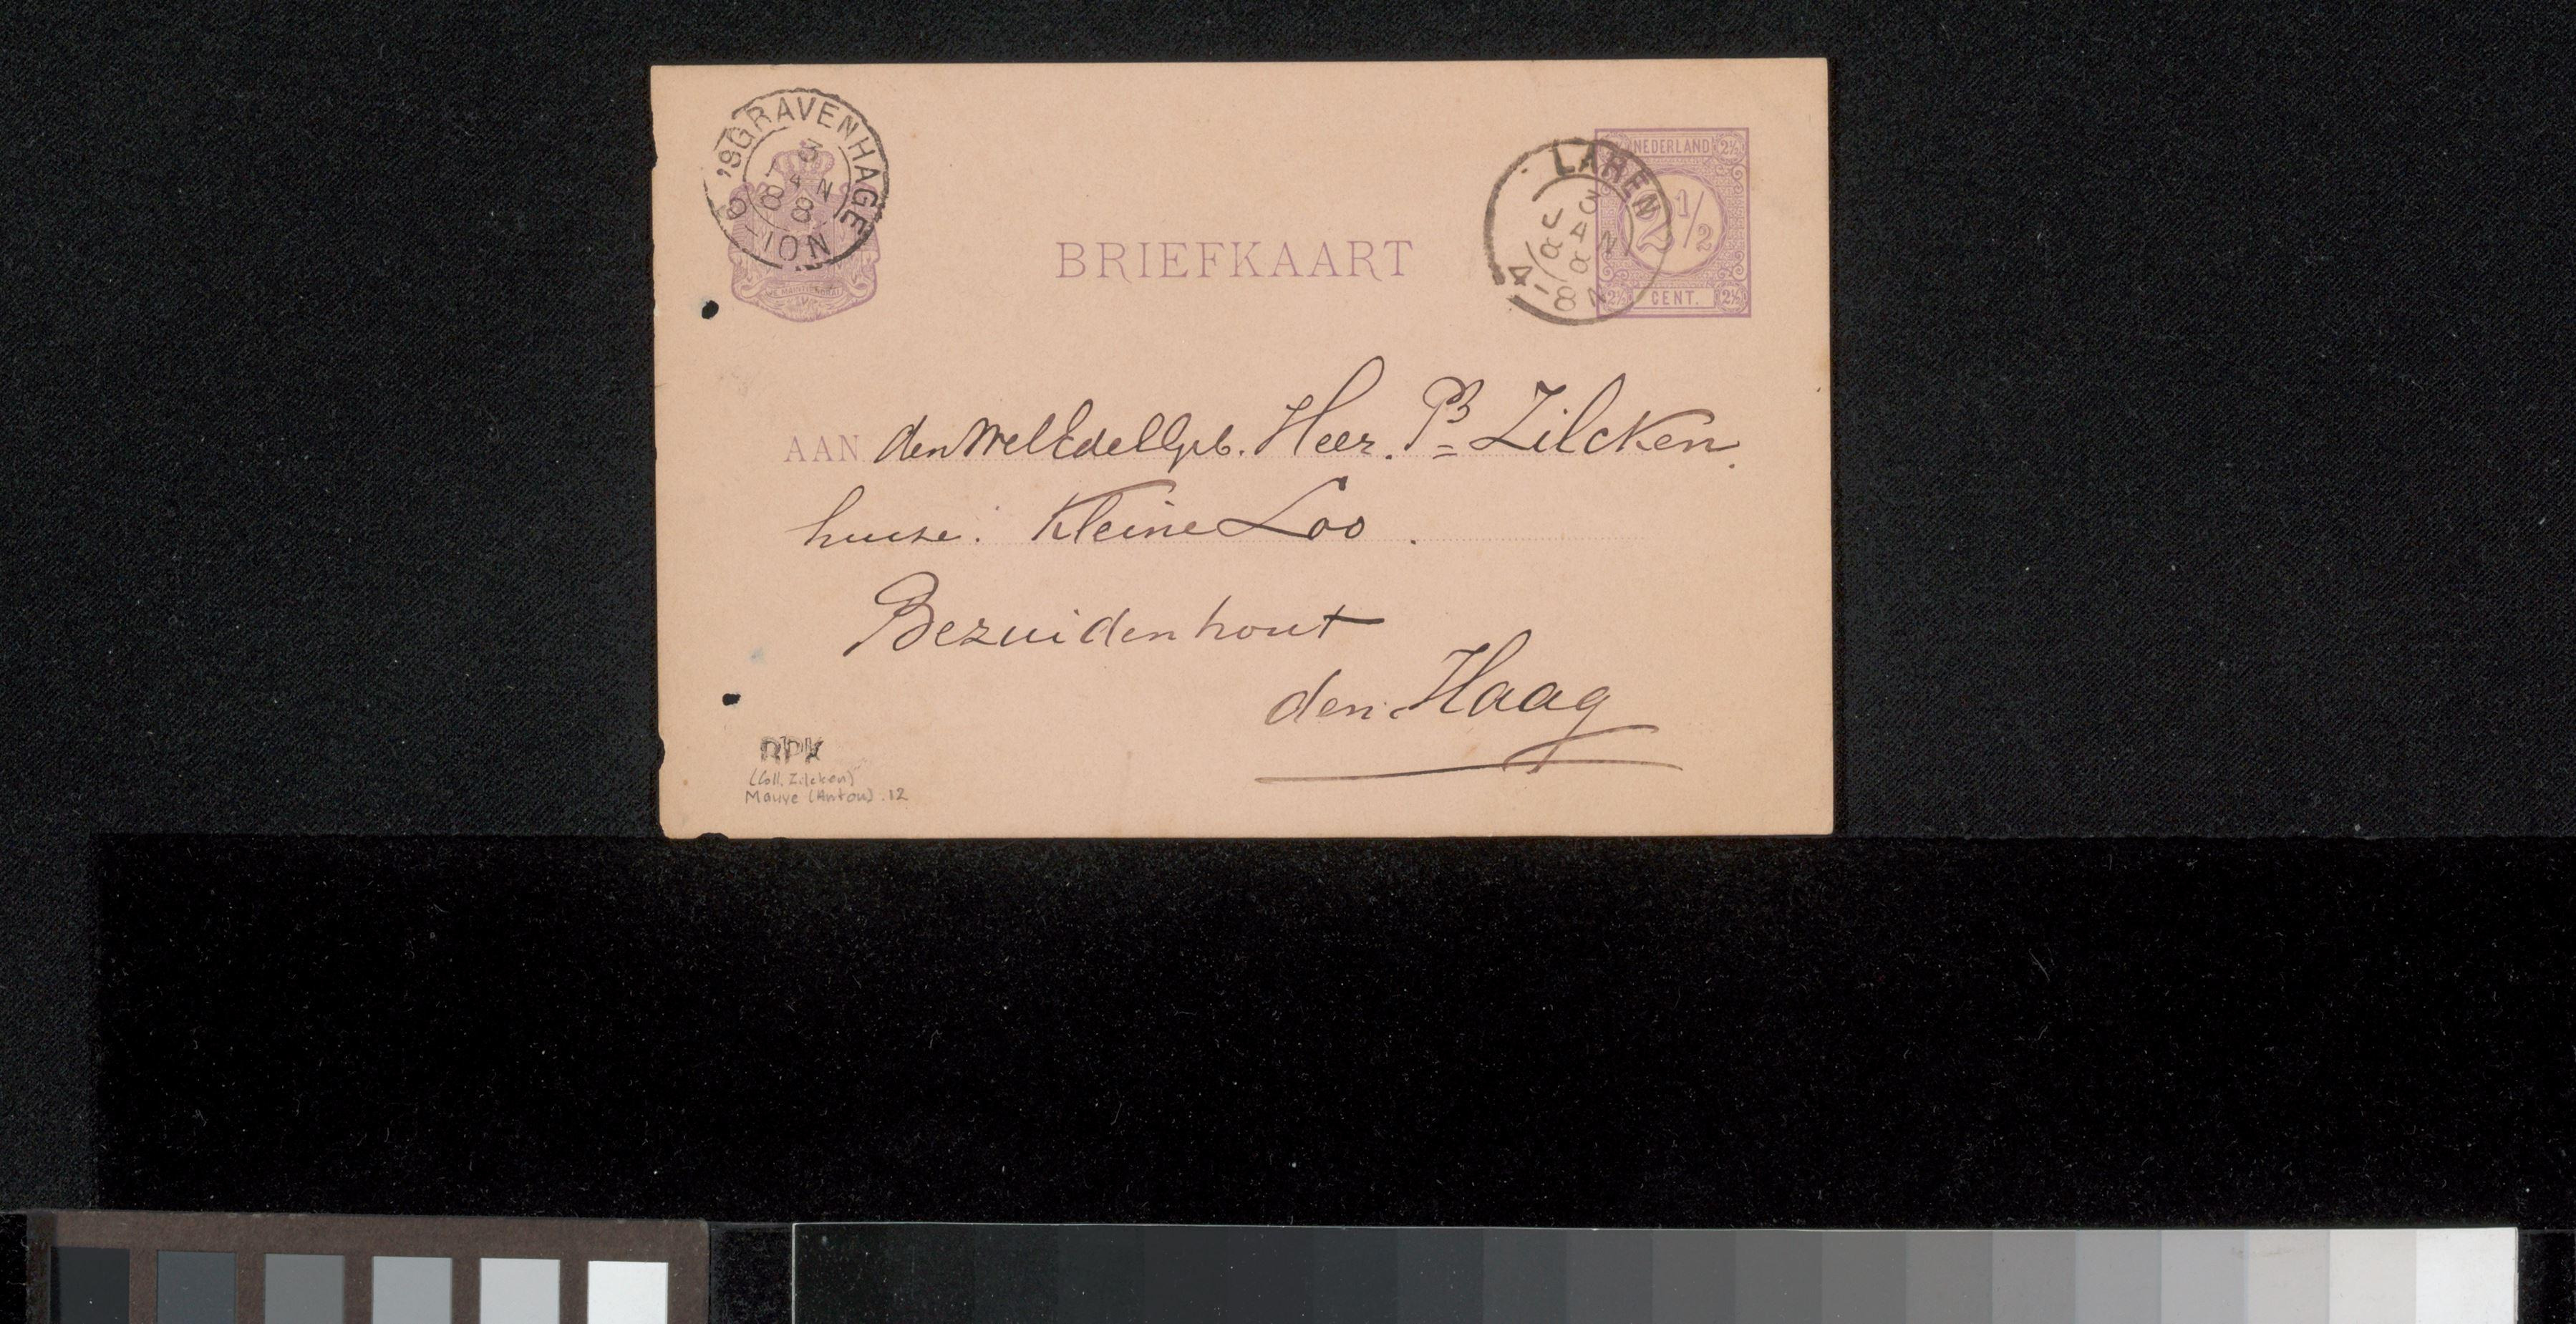 'SGRAVENHAGE
3
JAN
88
9-10N
LAREN
3
JAN
88
4-8N
NEDERLAND
2½
2½
2½
2½
CENT.
BRIEFKAART
AAN den WelEdelGeb. Heer. Ph Zilcken.
huize: Kleine Loo.
Bezuidenhout
den Haag
RPK
(Coll. Zilcken)
Mauve (Anton) .12